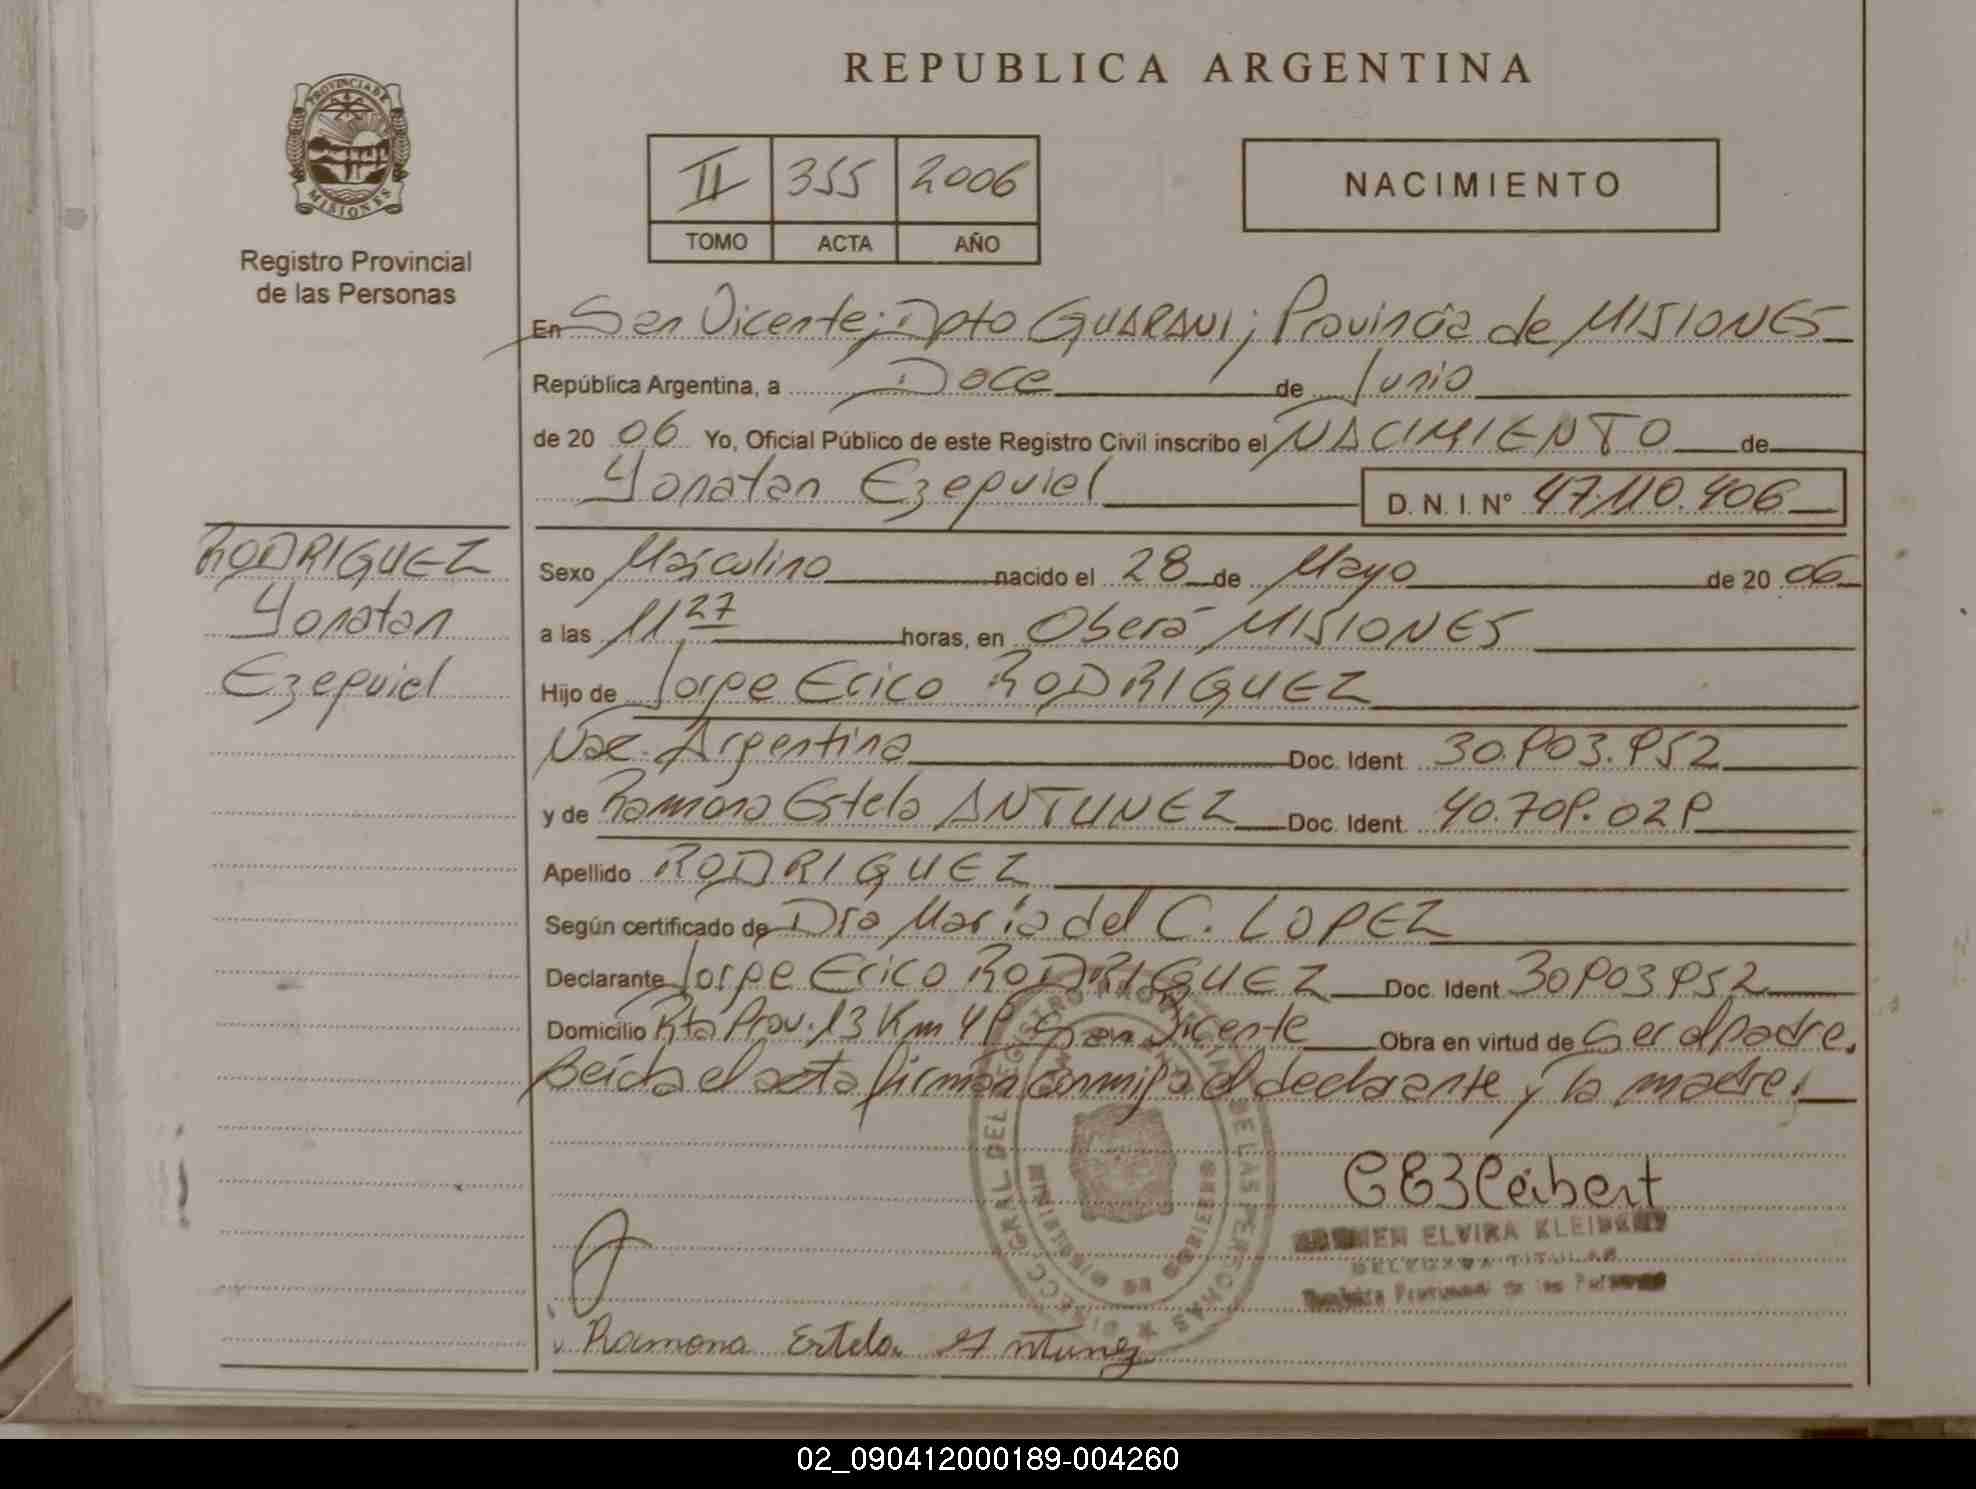 REPUBLICA ARGENTINA
PROVINCIA DE
MISIONES
Registro Provincial
de las Personas
II 355 2006
TOMO ACTA AÑO
NACIMIENTO
En San Vicente; Dpto GUARANI; Provincia de MISIONES
República Argentina, a Doce de Junio
de 20 06 Yo, Oficial Público de este Registro Civil inscribo el NACIMIENTO de
Yonatan Ezequiel D. N. I. N° 47.110.406
RODRIGUEZ
Yonatan
Ezequiel
Sexo Masculino nacido el 28 de Mayo de 20 06
a las 11 27 horas, en Oberá MISIONES
Hijo de Jorge Erico RODRIGUEZ
Nac. Argentina Doc. Ident. 30.903.952
y de Ramona Estela ANTUNEZ Doc. Ident. 40.709.029
Apellido RODRIGUEZ
Según certificado de Dra María del C. LOPEZ
Declarante Jorge Erico RODRIGUEZ Doc. Ident. 30903952
Domicilio Rta Prov. 13 Km 49 San Vicente Obra en virtud de Ser el padre.
Leída el acta firman conmigo el declarante y la madre.
ELVIRA KLEIBERT
DELEGADA TITULAR
Ramona Estela Antunez
02_090412000189-004260